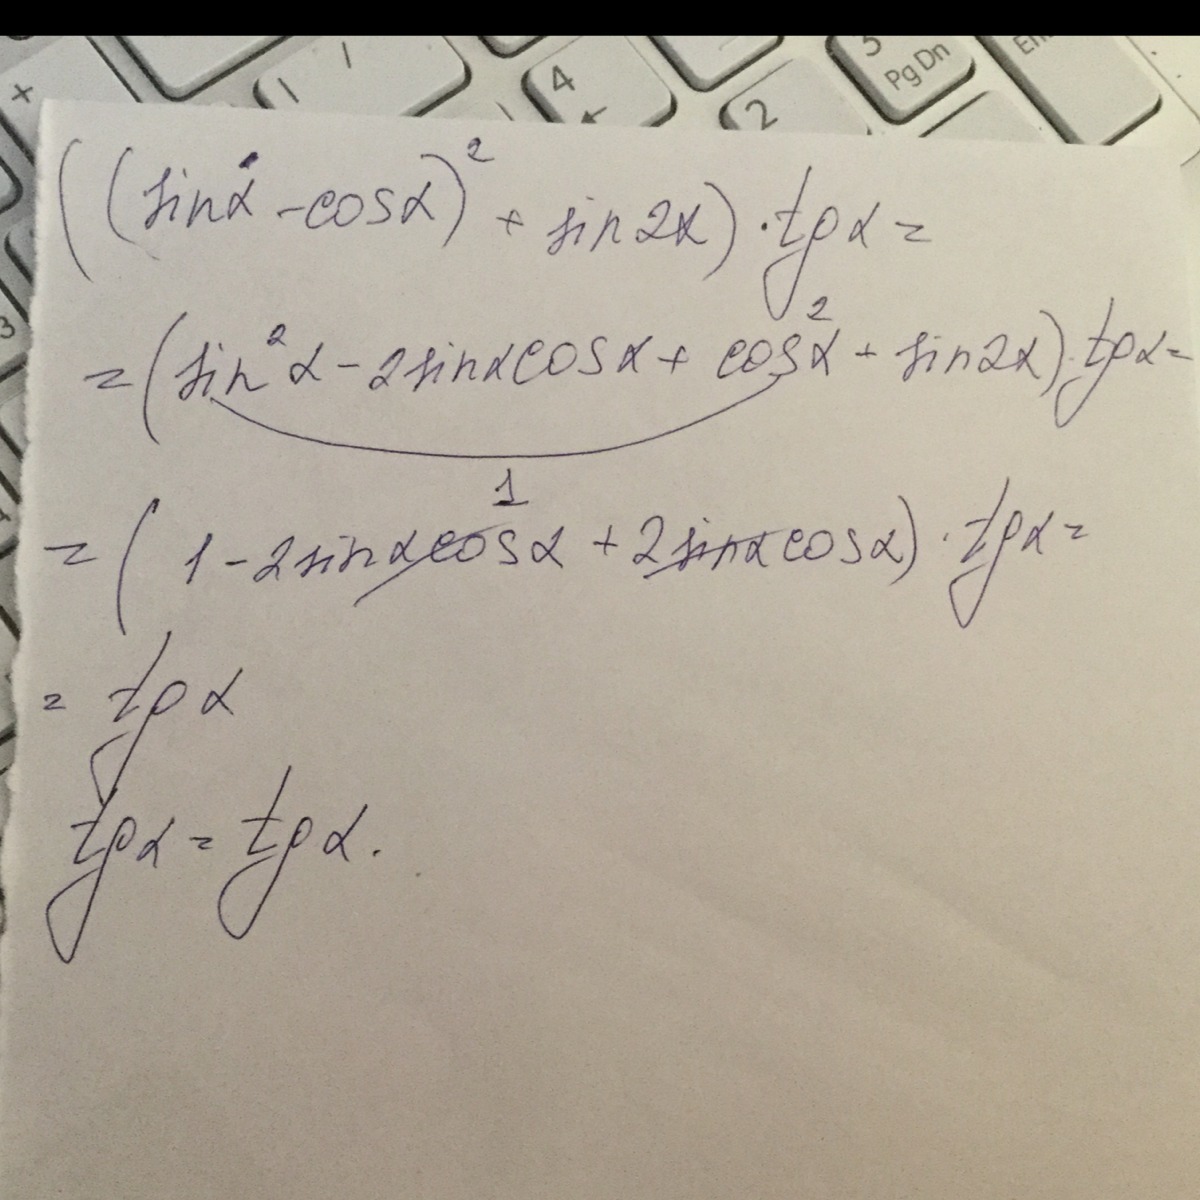 + 4 ← 2 3 Pg Dn
3
((sinα - cosα)² + sin2α) · tgα =
= (sin²α - 2sinαcosα + cos²α + sin2α) · tgα =
1
= (1 - 2sinαcosα + 2sinαcosα) · tgα =
= tgα
tgα = tgα.